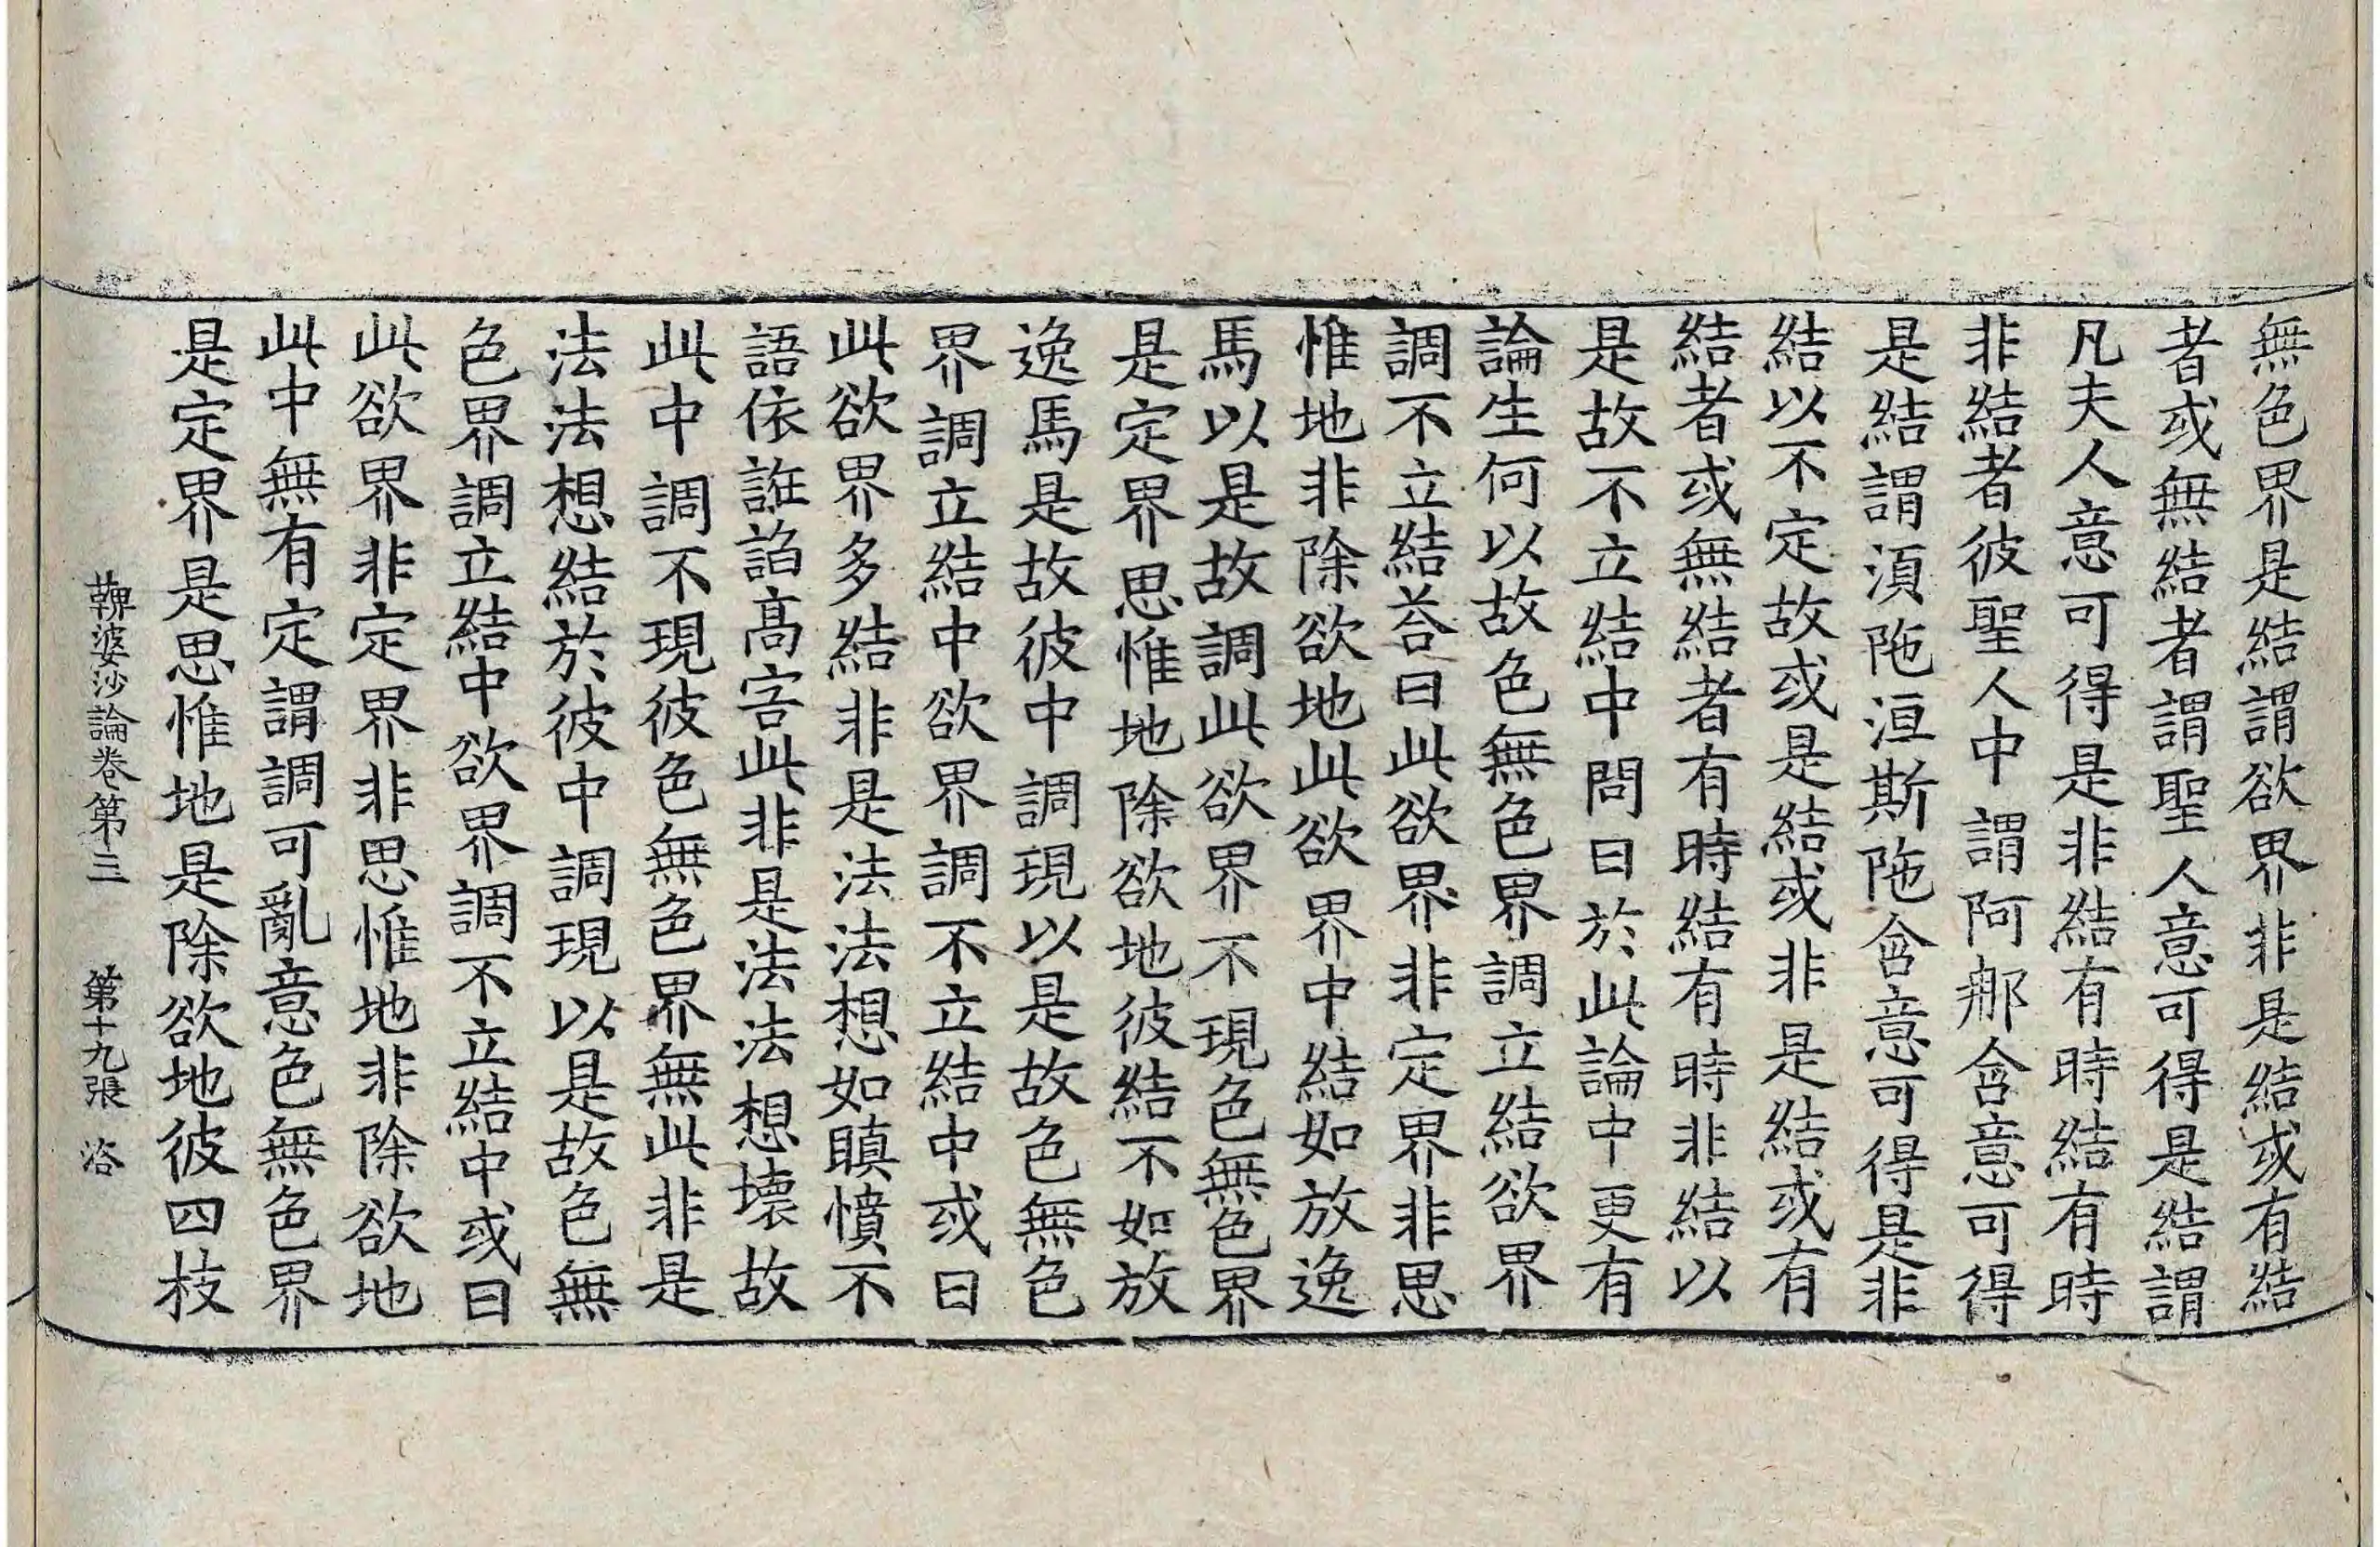 無色界是結謂欲界非是結或有結
者或無結者謂聖人意可得是結謂
凡夫人意可得是非結有時結有時
非結者彼聖人中謂阿那含意可得
是結謂湏陁洹斯陁含意可得是非
結以不定故或是結或非是結或有
結者或無結者有時結有時非結以
是故不立結中問曰於此論中更有
論生何以故色無色界調立結欲界
調不立結荅曰此欲界非定界非思
惟地非除欲地此欲界中結如放逸
馬以是故調此欲界不現色無色界
是定界思惟地除欲地彼結不如放
逸馬是故彼中調現以是故色無色
界調立結中欲界調不立結中或曰
此欲界多結非是法法想如瞋憤不
語依誑諂高害此非是法法想壊故
此中調不現彼色無色界無此非是
法法想結於彼中調現以是故色無
色界調立結中欲界調不立結中或曰
此欲界非定界非思惟地非除欲地
此中無有定謂調可亂意色無色界
是定界是思惟地是除欲地彼四枝
鞞婆沙論卷第三 第十九張 洛